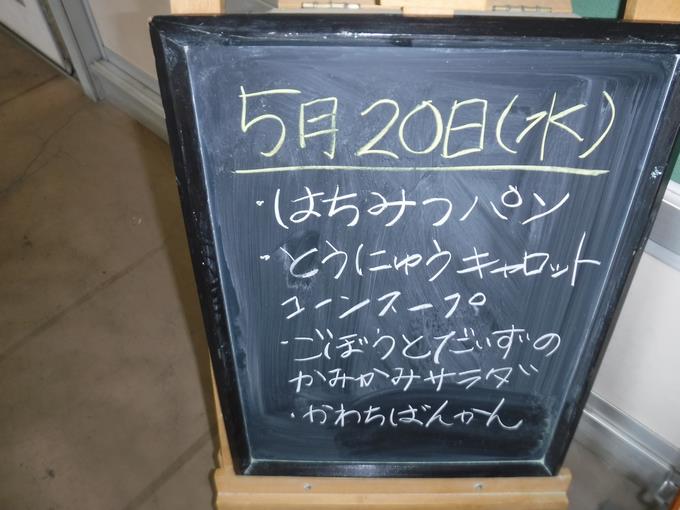 5月20日(水)
・はちみつパン
・とうにゅうキャロット
コーンスープ
・ごぼうとだいずの
かみかみサラダ
・かわちばんかん